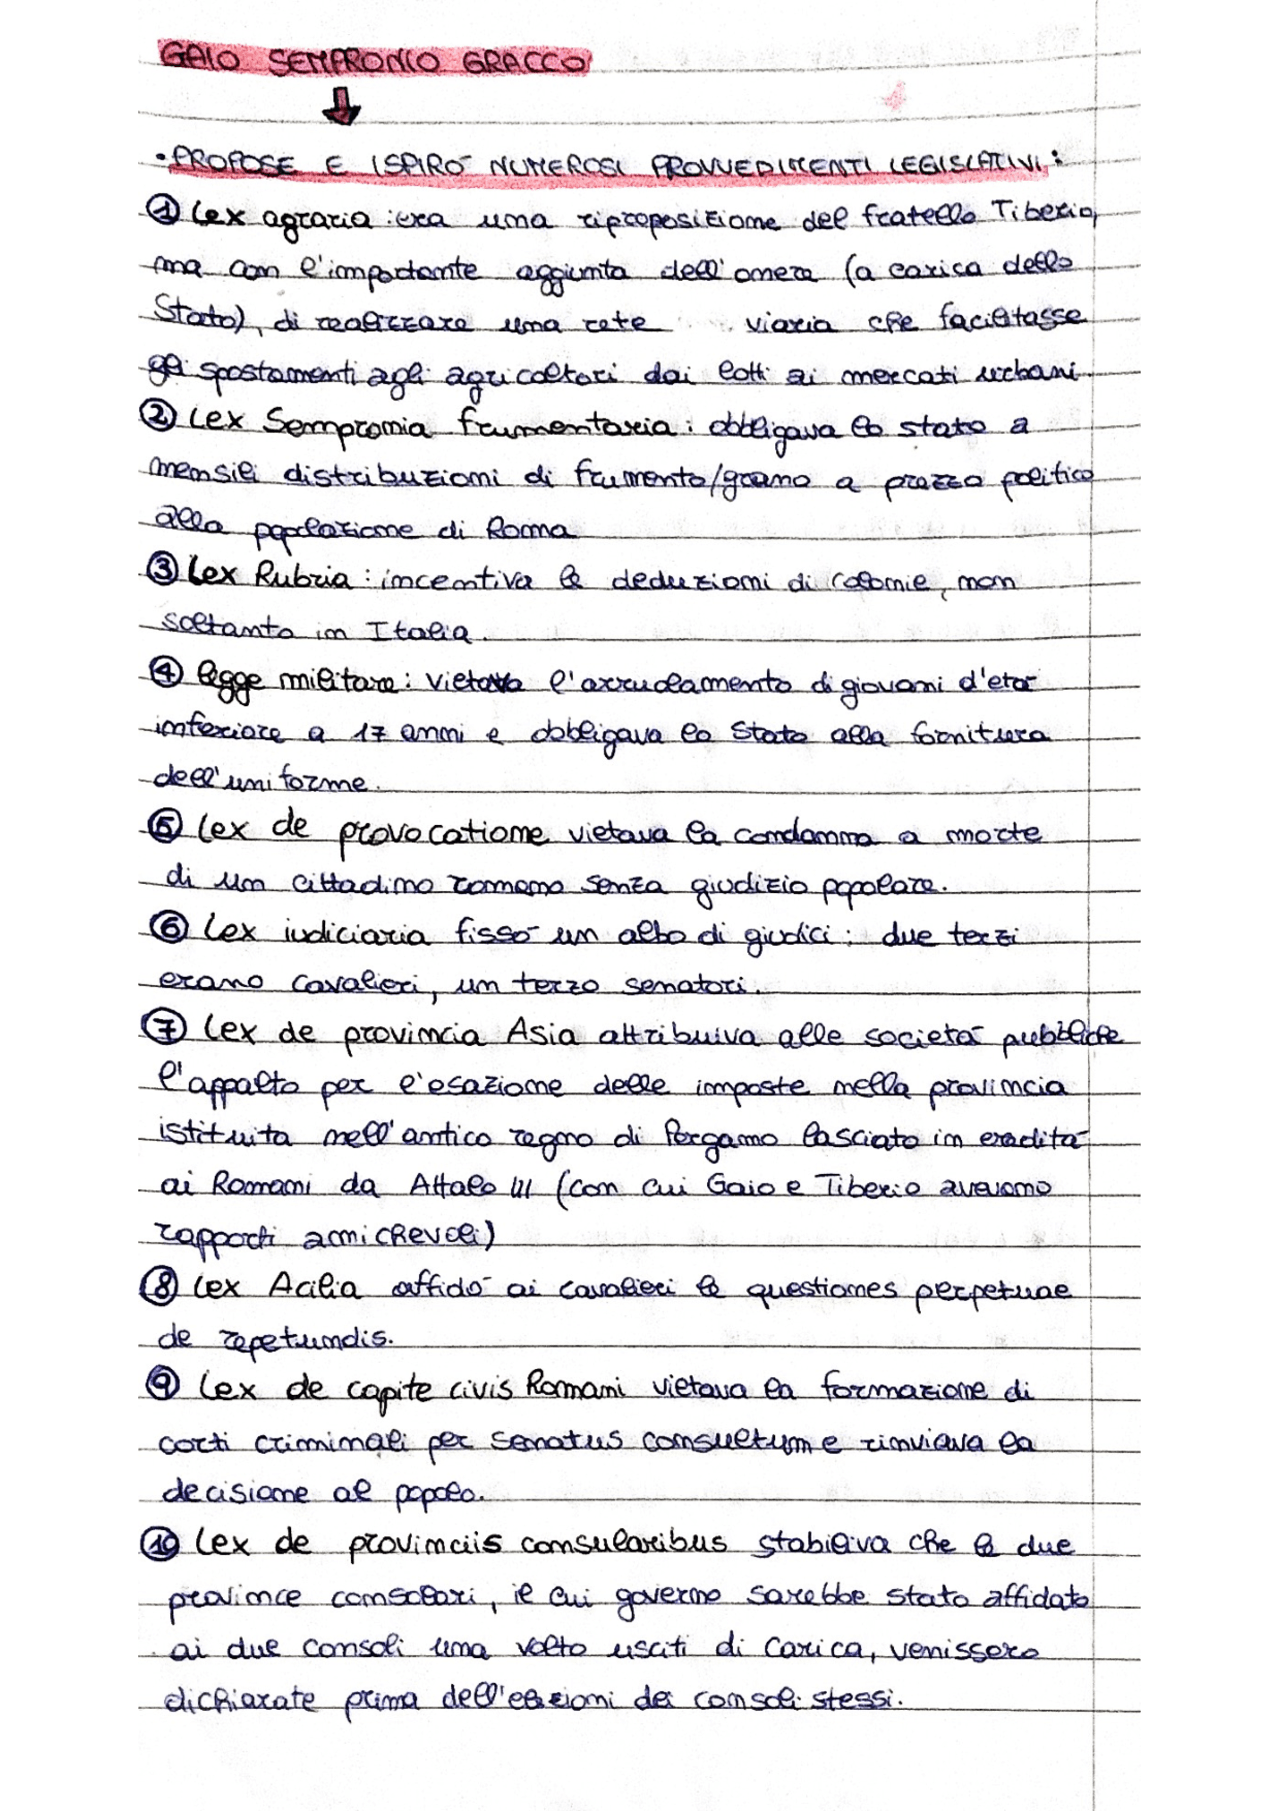 GAIO SEMPRONIO GRACCO
• PROPOSE E ISPIRÒ NUMEROSI PROVVEDIMENTI LEGISLATIVI:
① Lex agraria: era una riproposizione del fratello Tiberio,
ma con l'importante aggiunta dell'onere (a carico dello
Stato), di realizzare una rete viaria che facilitasse
gli spostamenti agli agricoltori dai lotti ai mercati urbani.
② Lex Sempronia frumentaria: obbligava lo stato a
mensili distribuzioni di frumento/grano a prezzo politico
alla popolazione di Roma
③ Lex Rubria: incentiva le deduzioni di colonie, non
soltanto in Italia.
④ legge militare: vietava l'arruolamento di giovani d'età
inferiore a 17 anni e obbligava lo Stato alla fornitura
dell'uniforme.
⑤ Lex de provocatione vietava la condanna a morte
di un cittadino romano senza giudizio popolare.
⑥ Lex iudiciaria fissò un albo di giudici: due terzi
erano cavalieri, un terzo senatori.
⑦ Lex de provincia Asia attribuiva alle società pubbliche
l'appalto per l'esazione delle imposte nella provincia
istituita nell'antico regno di Pergamo lasciato in eredità
ai Romani da Attalo III (con cui Gaio e Tiberio avevano
rapporti amichevoli)
⑧ Lex Acilia affidò ai cavalieri le questiones perpetuae
de repetundis.
⑨ Lex de capite civis Romani vietava la formazione di
corti criminali per senatus consultum e rinviava la
decisione al popolo.
⑩ Lex de provinciis consularibus stabiliva che le due
province consolari, il cui governo sarebbe stato affidato
ai due consoli una volta usciti di carica, venissero
dichiarate prima dell'elezioni dei consoli stessi.